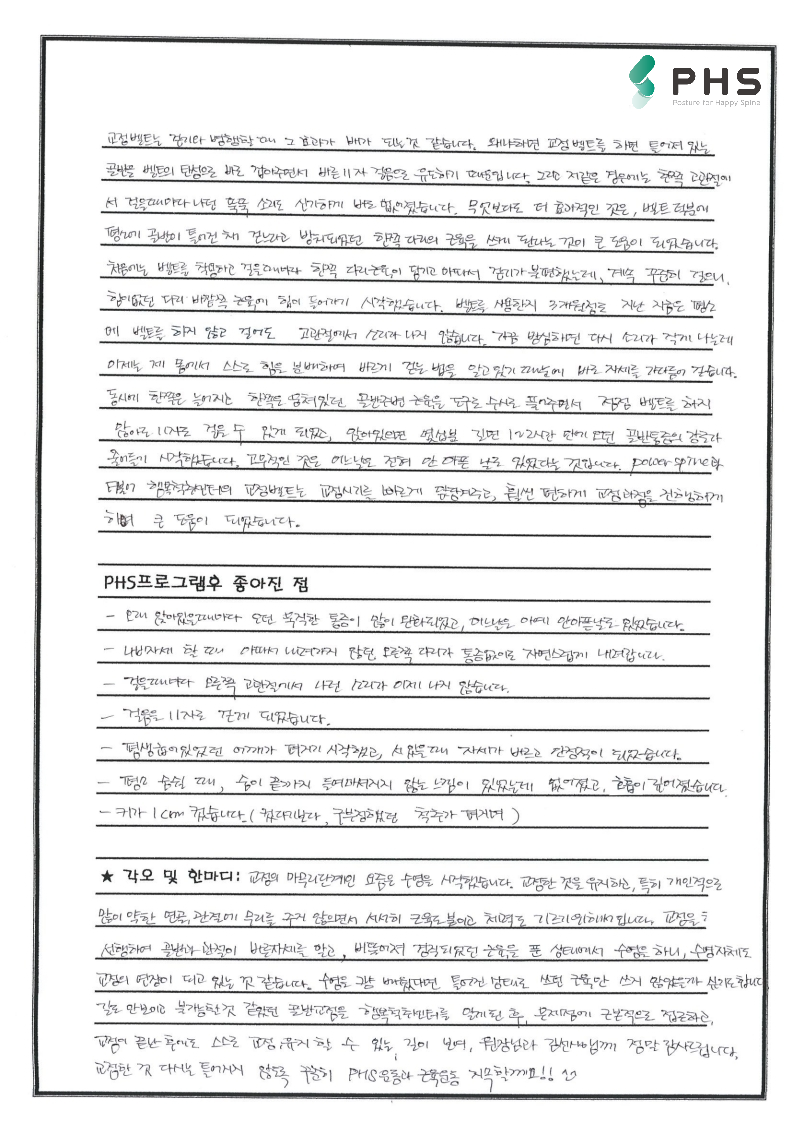 PHS
Posture for Happy Spine
교정벨트는 걷기와 병행할 때 그 효과가 배가 되는 것 같습니다. 왜냐하면 교정벨트를 하면 틀어져 있는
골반을 벨트의 탄성으로 바로 잡아주면서 바른 11자 걸음으로 유도하기 때문입니다. 그리고 저같은 경우에는 한쪽 고관절에
서 걸을때마다 나던 뚝뚝 소리도 신기하게 바로 없어졌습니다. 무엇보다도 더 효과적인 것은, 벨트 덕분에
평소에 골반이 틀어진 채 걷느라고 방치되었던 한쪽 다리의 근육을 쓰게 된다는 것이 큰 도움이 되었습니다.
처음에는 벨트를 착용하고 걸을때마다 한쪽 다리근육이 당기고 아파서 걷기가 불편했는데, 계속 꾸준히 걸으니,
힘이없던 다리 바깥쪽 근육에 힘이 들어가기 시작했습니다. 벨트를 사용한지 3개월정도 지난 지금은 평소
에 벨트를 하지 않고 걸어도 고관절에서 소리가 나지 않습니다. 가끔 방심하면 다시 소리가 작게 나는데
이제는 제 몸에서 스스로 힘을 분배하여 바르게 걷는 법을 알고있기 때문에 바로 자세를 가다듬어 걷습니다.
동시에 한쪽은 늘어지고 한쪽은 뭉쳐있던 골반주변 근육을 도구로 수시로 풀어주면서 점점 벨트를 하지
않아도 11자로 걸을 수 있게 되었고, 앉아있으면 몇십분 길면 1~2시간 만에 오던 골반통증의 강도가
줄어들기 시작했습니다. 고무적인 것은 어느날은 전혀 안 아픈 날도 있었다는 것입니다. power spine과
더불어 행복척추센터의 교정벨트는 교정시기를 빠르게 앞당겨주고, 훨씬 편하게 교정과정을 진행하게
하여 큰 도움이 되었습니다.
PHS프로그램후 좋아진 점
- 오래 앉아있을때마다 오던 묵직한 통증이 많이 완화되었고, 어느날은 아예 안아픈날도 있었습니다.
- 나비자세 할 때 아파서 내려가지 않던 오른쪽 다리가 통증없이도 자연스럽게 내려갑니다.
- 걸을때마다 오른쪽 고관절에서 나던 소리가 이제 나지 않습니다.
- 걸음을 11자로 걷게 되었습니다.
- 평생 굽어있었던 어깨가 펴지기 시작했고, 서있을때 자세가 바르고 안정적이 되었습니다.
- 평소 숨쉴 때, 숨이 끝까지 들여마셔지지 않는 느낌이 있었는데 없어졌고, 호흡이 깊어졌습니다.
- 키가 1cm 컸습니다. (컸다기보다, 구부정했던 척추가 펴지며)
★ 각오 및 한마디: 교정의 마무리단계인 요즘은 수영을 시작했습니다. 교정한 것을 유지하고, 특히 개인적으로
많이 약한 연골, 관절에 무리를 주지 않으면서 서서히 근육도 붙이고 체력도 기르기위해서입니다. 교정을
선행하여 골반과 관절이 바른자세를 알고, 비뚤어져 경직되었던 근육을 푼 상태에서 수영을 하니, 수영자체도
교정의 연장이 되고 있는 것 같습니다. 수영을 그냥 배웠다면 틀어진 상태로 쓰던 근육만 쓰지 않았을까 싶기도합니다.
길도 안보이고 불가능한것 같았던 골반교정을 행복척추센터를 알게된 후, 문제점에 근본적으로 접근하고,
교정이 끝난 후에도 스스로 교정,유지 할 수 있는 길이 보여, 원장님과 강선생님께 정말 감사드립니다.
교정한 것 다시는 틀어지지 않도록 꾸준히 PHS운동과 근육운동 지속할게요!!